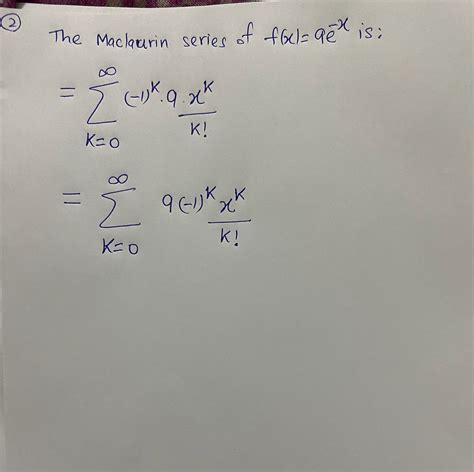 ② The Maclaurin series of f(x)=9e^-x is:
= ∑_{K=0}^{∞} (-1)^K . 9 . x^K / K!
= ∑_{K=0}^{∞} 9(-1)^K x^K / K!